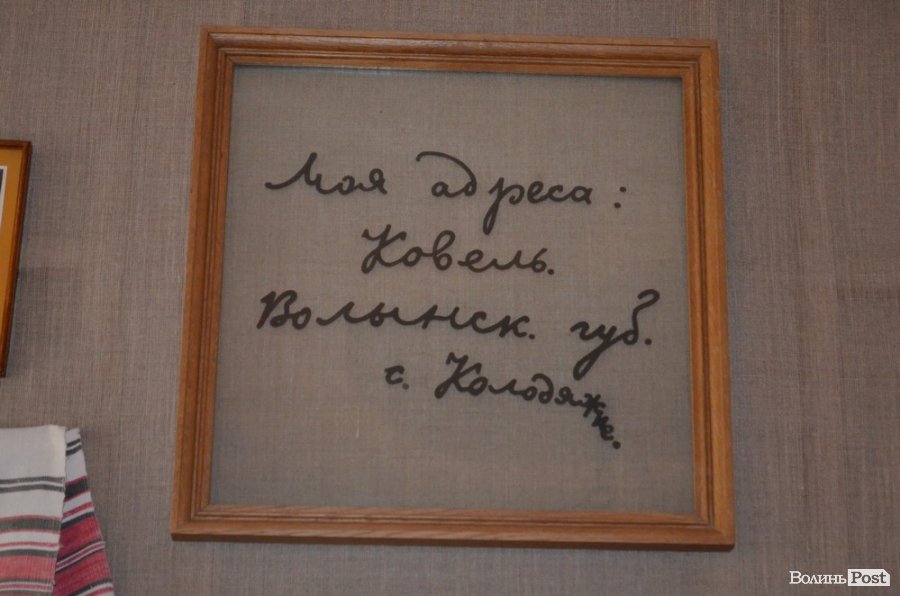 Моя адреса:
Ковель.
Волынск. губ.
с. Колодяжне.
ВолиньPost